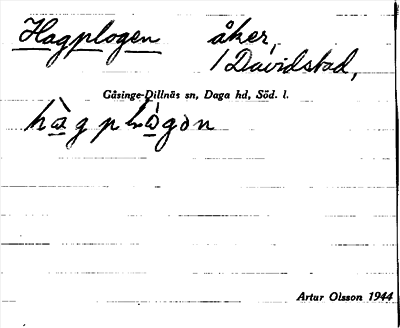 Hagplogen åker,
/ Davidstad,
Gåsinge-Dillnäs sn, Daga hd, Söd. l.
Artur Olsson 1944